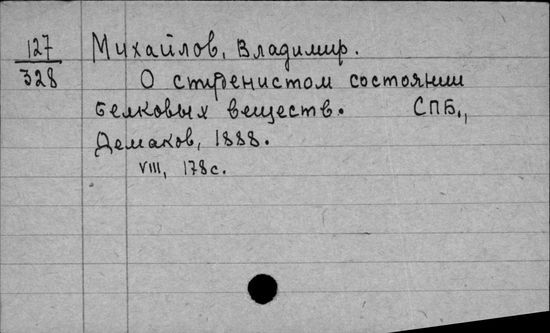 127 Михайлов, Владимир.
328 О студенистом состоянии
белковых веществ. СПБ.,
Демаков, 1888.
VIII, 178 с.